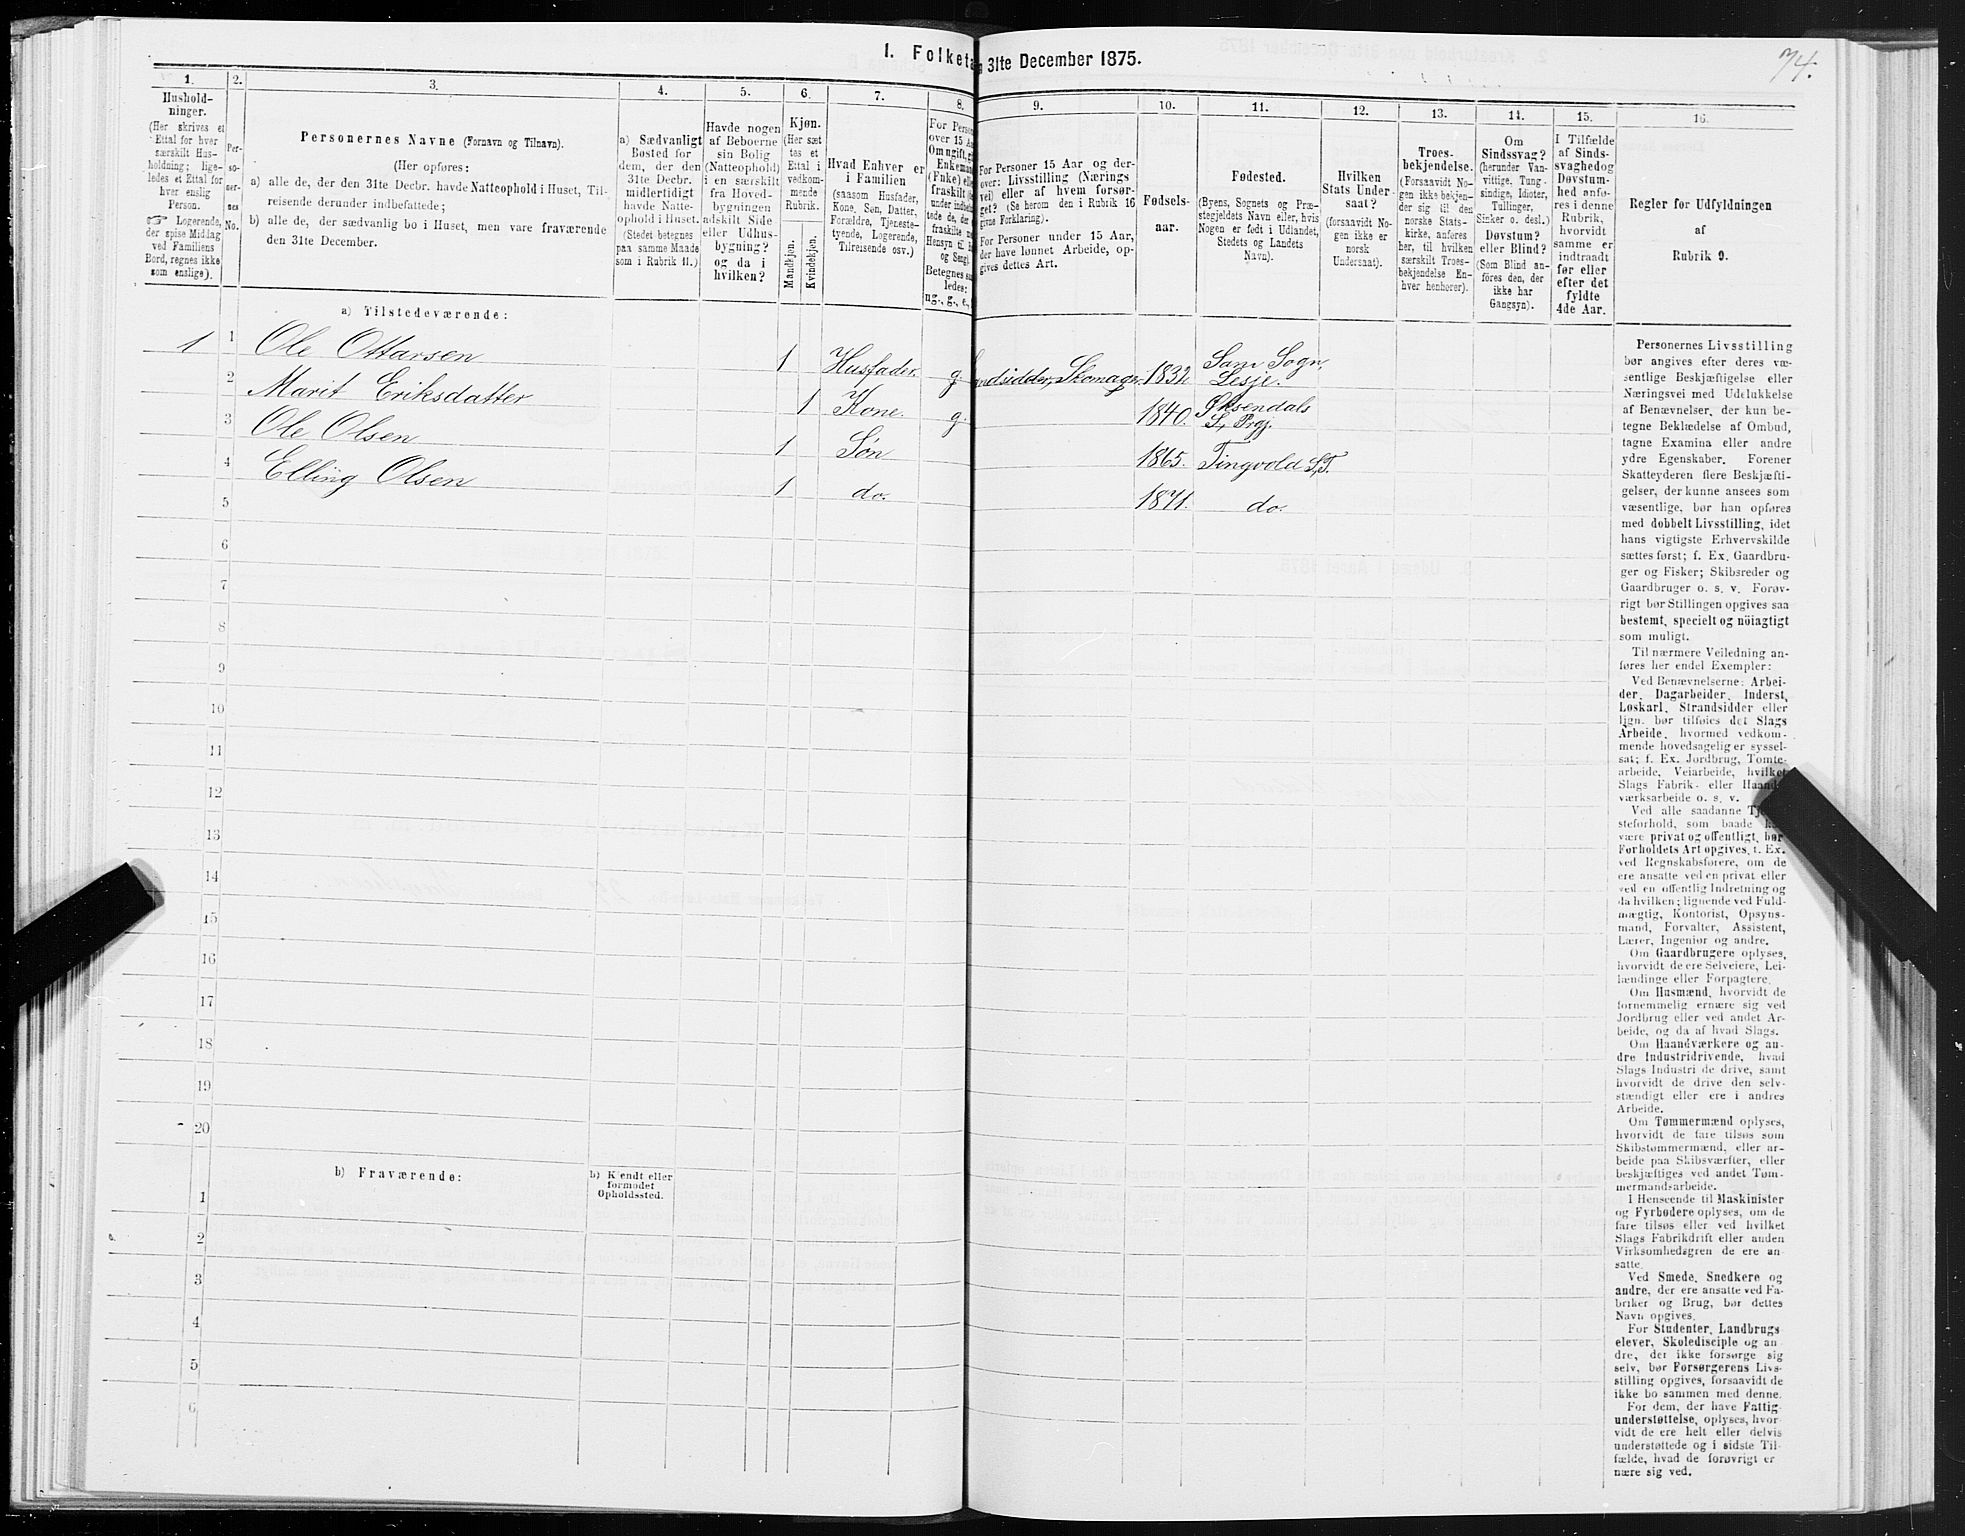 1. Folketa
n 31te December 1875.
74.
1.
2.
3.
4.
5.
6.
7.
8.
9.
10.
11.
12.
13.
14.
15.
16.
Hushold-
ninger.
(Her skrives et
Ettal for hver
særskilt Hus-
holdning; lige-
ledes et Ettal for
hver enslig
Person.
☞ Logerende,
der spise Middag
ved Familiens
Bord, regnes ikke
som enslige).
Per-
so-
ner-
nes
No.
Personernes Navne (Fornavn og Tilnavn).
(Her opføres:
a) alle de, der den 31te Decbr. havde Natteophold i Huset, Til-
reisende derunder indbefattede;
b) alle de, der sædvanlig bo i Huset, men vare fraværende
den 31te December.
a) Sædvanligt
Bosted for
dem, der den
31te Decbr.
midlertidigt
havde Natte-
ophold i Huset.
(Stedet betegnes
paa samme Maade
som i Rubrik 11.)
Havde nogen
af Beboerne
sin Bolig
(Natteophold)
i en særskilt
fra Hoved-
bygningen
adskilt Side
eller Udhus-
bygning?
og da i
hvilken?
Kjøn.
(Her sæt
tes et
Ettal i
vedkom-
mende
Rubrik.
Mandkjøn.
Kvindekjøn.
Hvad Enhver er
i Familien
(saasom Husfader,
Kone, Søn, Datter,
Forældre, Tjeneste-
tyende, Logerende,
Tilreisende osv.)
For Perso
over 15 Aa
Om ugift, g
Enkeman
(Enke) elle
fraskilt
under indbe
tede de, der
fraskilte
Hensyn til B
og Seng).
Betegnes saa
ledes:
ug., g., e.,
For Personer 15 Aar og der-
over: Livsstilling (Nærings
vei) eller af hvem forsør-
get? (Se herom den i Rubrik 16
givne Forklaring).
For Personer under 15 Aar,
der have lønnet Arbeide, op-
gives dettes Art.
Fødsels-
aar.
Fødested.
(Byens, Sognets og Præ-
stegjeldets Navn eller, hvis
Nogen er født i Udlandet,
Stedets og Landets
Navn).
Hvilken
Stats Under-
saat?
(forsaavidt No-
gen ikke er
norsk
Undersaat).
Troes-
bekjendelse.
(Forsaavidt No-
gen ikke bekjen-
der sig til den
norske Stats-
kirke, anføres
her, til hvilken
særskilt Troes-
bekjendelse En-
hver henhører).
Om
Sindssvag?
(herunder Van-
vittige, Tung-
sindige, Idioter,
Tullinger,
Sinker o. desl.)
Døvstum?
eller Blind?
(Som Blind an-
føres den, der
ikke har
Gangsyn).
I Tilfælde
af Sinds-
svaghed og
Døvstum-
hed anfø-
res i denne
Rubrik,
hvorvidt
samme er
indtraadt
før eller
efter det
fyldte
4de Aar.
Regler for Udfyldningen
af
Rubrik 9.
a) Tilstedeværende:
1 1 Ole Ottarsen 1 Husfader. g. ndsidder, Skomager. 1832. Sam Sogn, Lesje.
2 Marit Eriksdatter 1 Kone. g. 1840. Øksendals S., Prgj.
3 Ole Olsen 1 Søn 1865. Tingvold S, T.
4 Elling Olsen 1 do. 1871. do.
5
6
7
8
9
10
11
12
13
14
15
16
17
18
19
20
b) Fraværende:
b) Kjendt eller
formodet
Opholdssted.
1
2
3
4
5
6
Personernes Livsstilling
bør angives efter deres væ-
sentlige Beskjæftigelse eller
Næringsvei med Udelukkelse
af Benævnelser, der kun be-
tegne Beklædelse af Ombud,
tagne Examina eller andre
ydre Egenskaber. Forener
Skatteyderen flere Beskjæfti-
gelser, der kunne ansees som
væsentlige, bør han opføres
med dobbelt Livsstilling, idet
hans vigtigste Erhvervskilde
sættes først; f. Ex. Gaardbru-
ger og Fisker; Skibsreder og
Gaardbruger o. s. v. Forøv-
rigt bør Stillingen opgives saa
bestemt, specielt og nöiagtigt
som muligt.
Til nærmere Veiledning an-
føres her endel Exempler:
Ved Benævnelserne: Arbei-
der, Dagarbeider, Inderst,
Løskarl, Strandsidder eller
lign. bør tilføies det Slags
Arbeide, hvormed vedkom-
mende hovedsagelig er syssel-
sat; f. Ex. Jordbrug, Tomte-
arbeide, Veiarbeide, hvilket
Slags Fabrik- eller Haand-
værksarbeide o. s. v.
Ved alle saadanne Tje
steforhold, som baade k
være privat og offentligt, bør
Forholdets Art opgives, f. Ex.
ved Regnskabsførere, om de
ere ansatte ved en privat eller
ved en offentlig Indretning og
da hvilken; lignende ved Fuld-
mægtig, Kontorist, Opsyns-
mand, Forvalter, Assistent,
Lærer, Ingeniør og andre.
Om Gaardbrugere oplyses,
hvorvidt de ere Selveiere, Lei-
lændinge eller Forpagtere.
Om Husmænd, hvorvidt de
fornemmelig ernære sig ved
Jordbrug eller ved andet Ar-
beide, og da af hvad Slags.
Om Haandværkere og an-
dre Industridrivende, hvad
Slags Industri de drive, samt
hvorvidt de drive den selv-
stændigt eller ere i andres
Arbeide.
Om Tømmermænd oplyses,
hvorvidt de fare tilsøs som
Skibstømmermænd, eller ar-
beide paa Skibsværfter, eller
beskjæftiges ved andet Tøm-
mermandsarbeide.
I Henseende til Maskinister
og Fyrbødere oplyses, om de
fare tilsøs eller ved hvilket
Slags Fabrikdrift eller anden
Virksomhedsgren de ere an-
satte.
Ved Smede, Snedkere og
andre, der ere ansatte ved Fa-
briker og Brug, bør dettes
Navn opgives.
For Studenter, Landbrugs
elever, Skoledisciple og an-
dre, der ikke forsørge sig
selv, bør Forsørgerens Livs-
stilling opgives, forsaavidt de
ikke bo sammen med denne.
For dem, der have Fattig-
understøttelse, oplyses, hvor-
vidt de ere helt eller delvis
understøttede og i sidste Til-
fælde, hvad de forøvrigt er
nære sig ved.